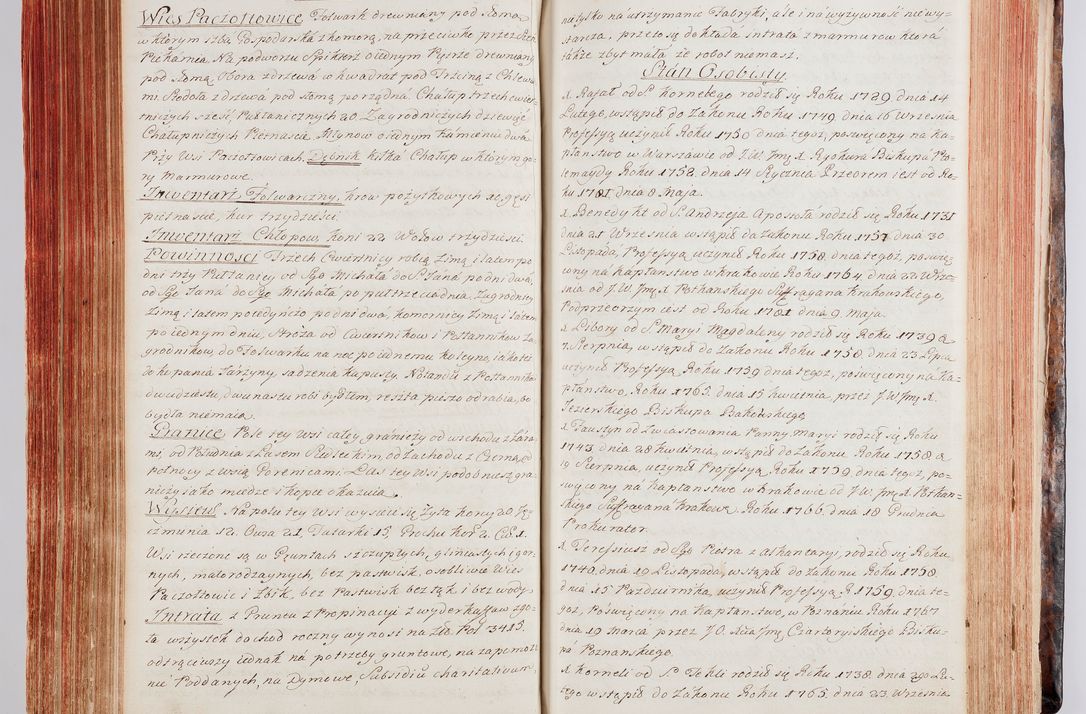 Wieś Paczołtowice Folwark drewniany pod słomą
w którym izba Gospodarska z komorą, na przeciwko przez sień
Piekarnia. Na podworzu Spikierz o iednym Piętrze drewniany
pod słomą, Obora z drzewa w kwadrat pod Trzciną z Chlewa
mi. Stodoła z drzewa pod słomą porządna. Chałup trzech cwier-
tniczych sześć, Pułtanicznych 20. Zagrodniczych dziewięć
Chałupniczych Piętnaście. Młynow o iednym kamieniu dwa
Przy Wsi Paczołtowicach, Dębnik kilka Chałup w którym go-
ry Marmurowe.
Inwentarz Folwarczny, krow pożytkowych 10. gęsi
piętnaście, kur trzydzieści.
Inwentarz Chłopow, koni 22. Wołow trzydzieści.
Powinności Trzech Cwiertnicy robią zimą i latem po
dni trzy Pułtanicy od Sgo Michała do S. Jana po dni dwa,
od Sgo Jana do Sgo Michała po puł trzecia dnia. Zagrodnicy
zimą i latem poiedyńczo po dni dwa, komornicy zimą i latem
po iednym dniu. Stróża od Cwiertnikow i Pułtannikow Za-
grodnikow do Folwarku na noc po iednemu koleyno, iako też
do kopania Jarzyny, sadzenia kapusty. Notandũ z Pułtannikow
dwudziestu, dwunastu robi bydłem, reszta pieszo odrabia, bo
bydła niemaią.
Granice Pole tey Wsi całey, graniczy od wschodu z Zara-
mi, od Południa z Lasem Siedleckim, od Zachodu z Czerną, od
pułnocy z Wsią Gorenicami. Las tey Wsi podobniesz gra-
niczy iako miedze i kopce okazuią.
Wysiew Na polu tey Wsi wysieie się Żyta korcy 20. Ję-
czmienia 12. Owsa 21. Tatarki 15, Grochu kor: 2. Cć 1.
Wsi rzeczone są w Gruntach szczupłych, gliniastych i gor-
nych, małorodzaynych, bez pastwisk, osobliwie Wieś
Paczołtowic i Zbik, bez Pastwisk bez łąk i bez wody.
Intrata z Gruncu z Propinacyi z wyderkaffow zgo-
ła wszystek dochod roczny wynosi na Zło: Pol: 3415.
odtrąciwszy iednak na potrzeby gruntowe, na zapomoże-
nie Poddanych, na Dymowe, Subsidiũ charitativum,
nietylko na utrzymanie Fabryki, ale i na wyżywność niewy-
starcza, przeto się dokłada intrata z marmurow ktora
także zbyt mała że robot niemasz.
Stan Osobisty.
X. Rafał od S. Kornelego rodził się Roku 1729. dnia 14
Lutego, wstąpił do Zakonu Roku 1749. dnia 16 Września
Professyą uczynił Roku 1750 dnia tegoż, poswięcony na ka-
płanstwo w Warszawie od J.W. Jmć X. Rychura Biskupa Pto-
lemaydy Roku 1752. dnia 14 Stycznia Przeorem iest od Ro-
ku 1781 dnia 8. Maja.
X. Benedykt od S. Andrzeja Apostoła rodził się Roku 1731
dnia 21 Września wstąpił do Zakonu Roku 1757 dnia 30
Listopada, Professyą uczynił Roku 1758. dnia tegoż, poswię-
cony na kapłanstwo w Krakowie Roku 1764. dnia 22 Wrze-
śnia od J.W. Jmć X. Potkanskiego Suffragana Krakowskiego,
Podprzeorzym iest od Roku 1781 dnia 9. Maja.
X. Libory od S. Maryi Magdaleny rodził się Roku 1739 d.
7. Sierpnia, wstąpił do Zakonu Roku 1758. dnia 23 Lipca
uczynił Professyą Roku 1759 dnia tegoż, poswięcony na ka-
płanstwo, Roku 1765. dnia 15 kwietnia, przez J.W. Jmć X.
Jezierskiego Biskupa Bakowskiego.
X. Faustyn od Zwiastowania Panny Maryi rodził się Roku
1743 dnia 28 kwietnia, wstąpił do Zakonu Roku 1758 d.
19 Sierpnia, uczynił Professyą Roku 1759 dnia tegoż, po-
swięcony na kapłanstwo w Krakowie od J.W. Jmć X. Potkan-
skiego Suffragana Krakow: Roku 1766. dnia 18 Grudnia
Prokurator.
X. Teressiusz od Sgo Piotra z Alkantary, rodził się Roku
1740. dnia 19 Listopada, wstąpił do Zakonu Roku 1758.
dnia 15 Pazdziernika, uczynił Professyą R. 1759. dnia te-
goż, Poswięcony na kapłanstwo, w Poznaniu Roku 1767
dnia 19 Marca przez J.O. Xcia Jmć Czartoryiskiego Bisku-
pa Poznanskiego.
X. Korneli od S. Tekli rodził się Roku 1738. dnia 29 Lu-
tego wstąpił do Zakonu Roku 1765. dnia 23. Września